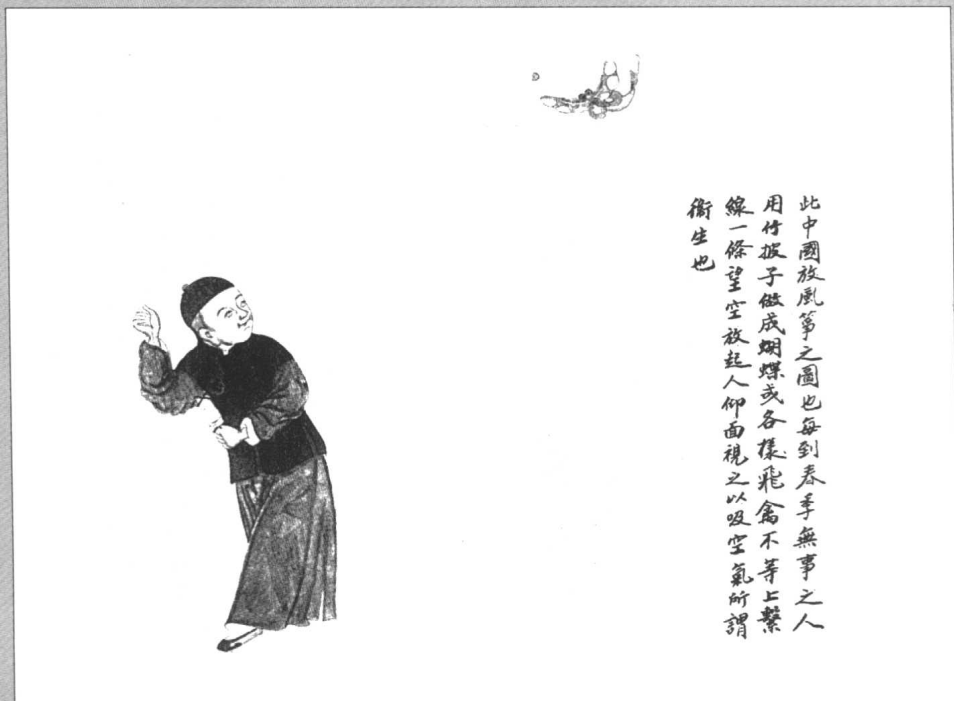 此中國放風箏之圖也每到春季無事之人
用竹披子做成蝴蝶或各樣飛禽不等上繫
線一條望空放起人仰面視之以吸空氣所謂
衛生也